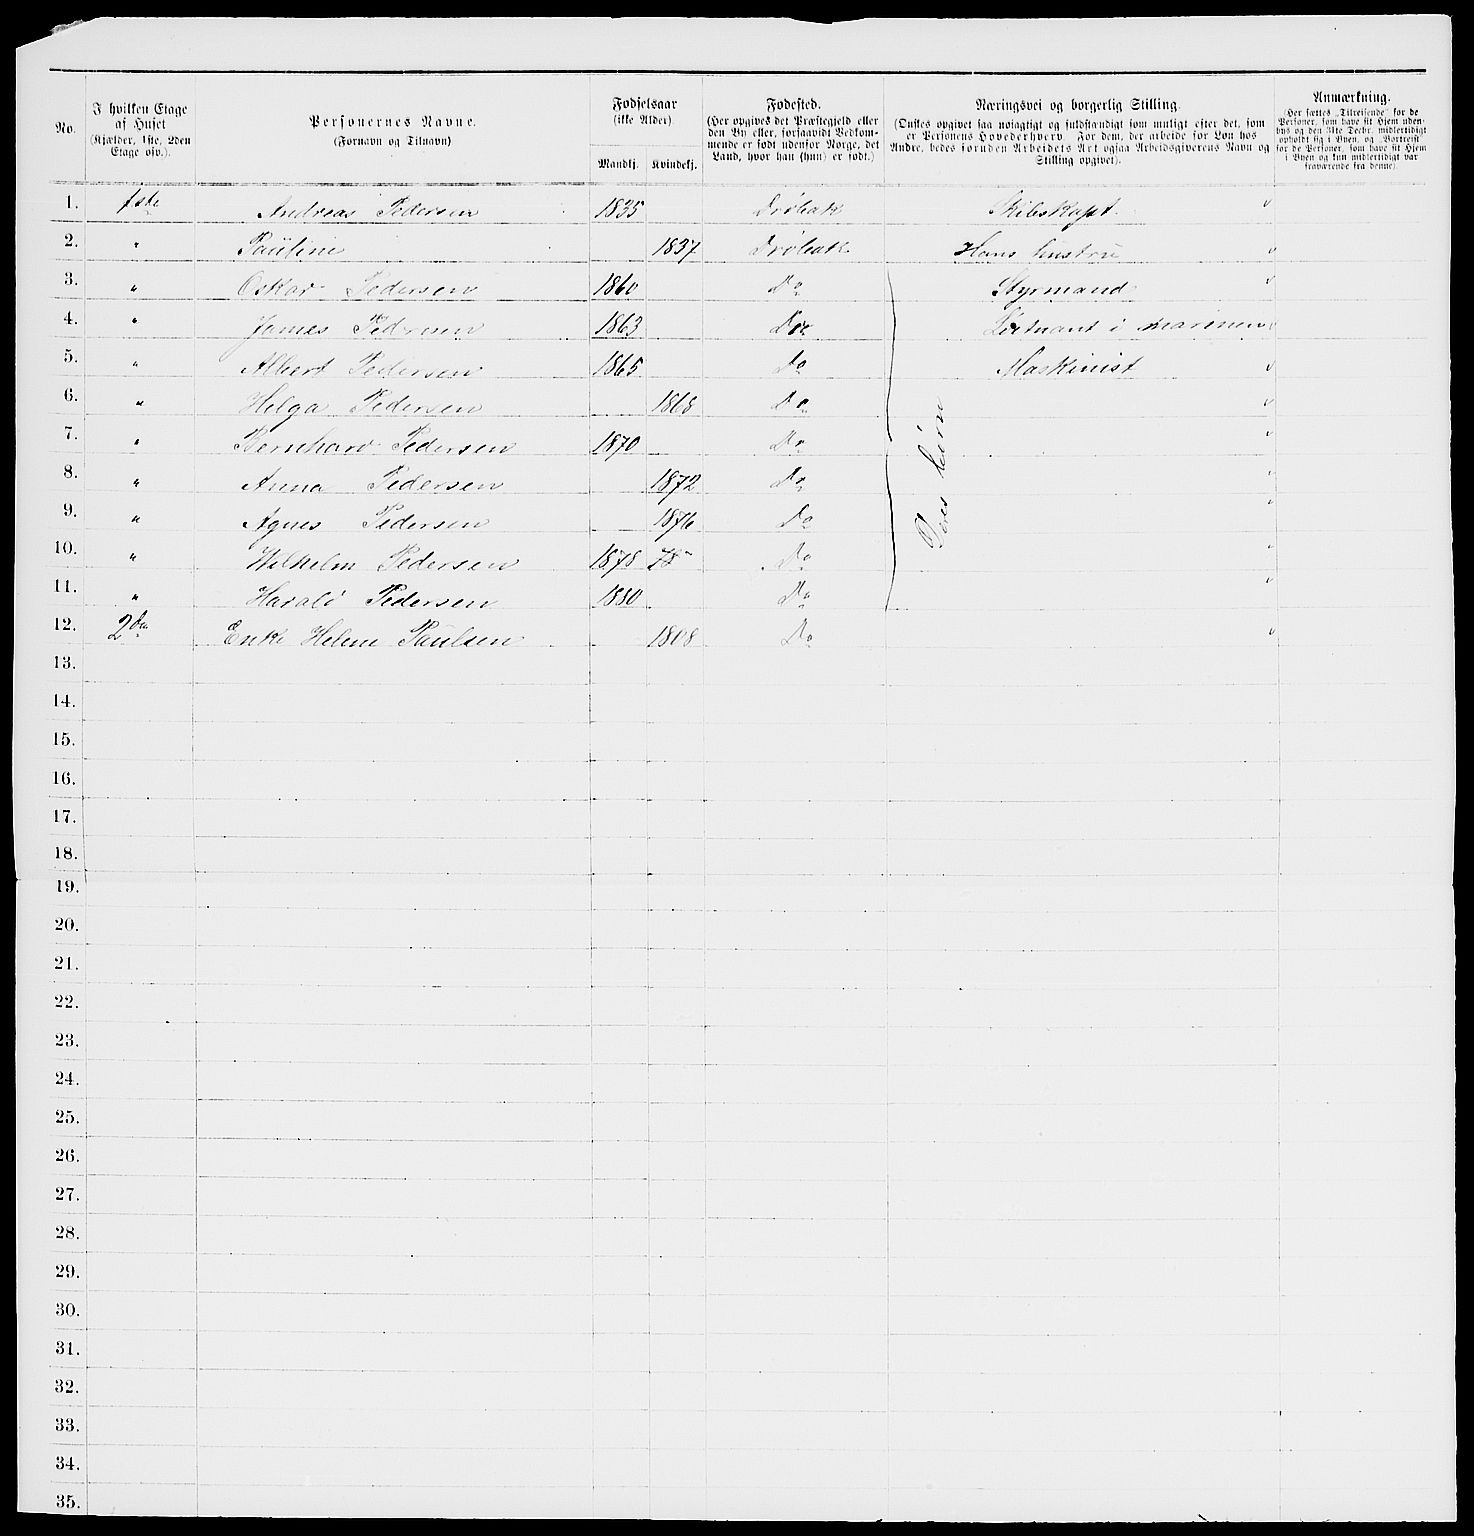 No.
I hvilken Etage af Huset (Kjælder, 1ste, 2den Etage osv.).
Personernes Navne. (Fornavn og Tilnavn)
Fødselsaar (ikke Alder). Mandkj. Kvindekj.
Fødested. (Her opgives det Præstegjeld eller den By eller, forsaavidt Vedkommende er født udenfor Norge, det Land, hvor han (hun) er født.)
Næringsvei og borgerlig Stilling. (Ønskes opgivet saa nøiagtigt og fuldstændigt som muligt efter det, som er Personens Hovederhverv. For dem, der arbeide for Løn hos Andre, bedes foruden Arbeidets Art ogsaa Arbeidsgiverens Navn og Stilling opgivet).
Anmærkning. (Her sættes „Tilreisende“ for de Personer, som have sit Hjem udenbys og den 31te Decbr. midlertidigt opholdt sig i Byen, og „Bortreist“ for de Personer, som have sit Hjem i Byen og kun midlertidigt var fraværende fra denne).
1. 1ste Andreas Pedersen 1835 Drøbak Skibskapt. "
2. " Pauline 1837 Drøbak Hans hustru "
3. " Oskar Pedersen 1860 Do Styrmand "
4. " James Pedersen 1863 Do Løitnant i marinen "
5. " Albert Pedersen 1865 Do Maskinist "
6. " Helga Pedersen 1868 Do "
7. " Bernhard Pedersen 1870 Do "
8. " Anna Pedersen 1872 Do "
9. " Agnes Pedersen 1876 Do "
10. " Wilhelm Pedersen 1878 78 Do "
11. " Harald Pedersen 1880 Do "
Deres børn
12. 2den Enke Helene Paulsen 1808 Do "
13.
14.
15.
16.
17.
18.
19.
20.
21.
22.
23.
24.
25.
26.
27.
28.
29.
30.
31.
32.
33.
34.
35.